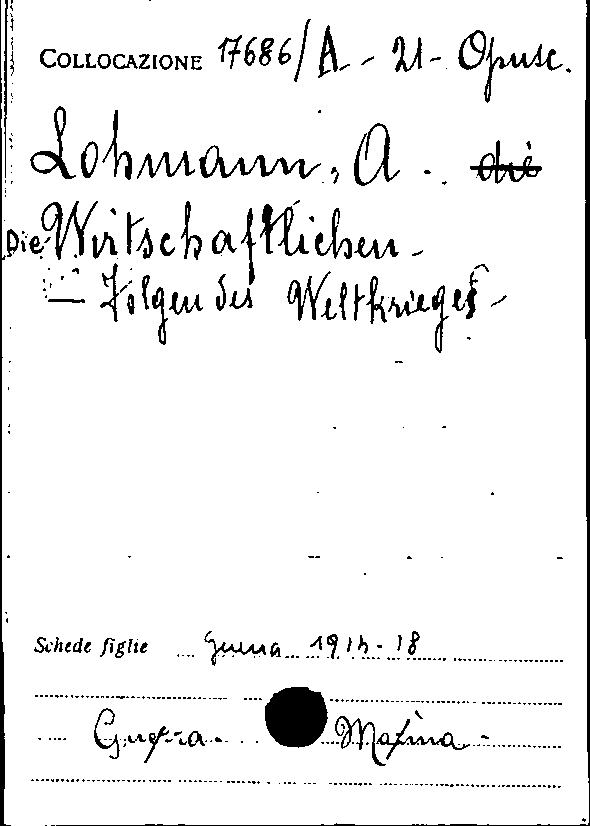 COLLOCAZIONE 17686/A - 21 - Opusc.
Lohmann, A. die
Die Wirtschaftlichen -
- Folgen des Weltkrieges -
Schede figlie Guerra 1914-18
Guerra. Marina -